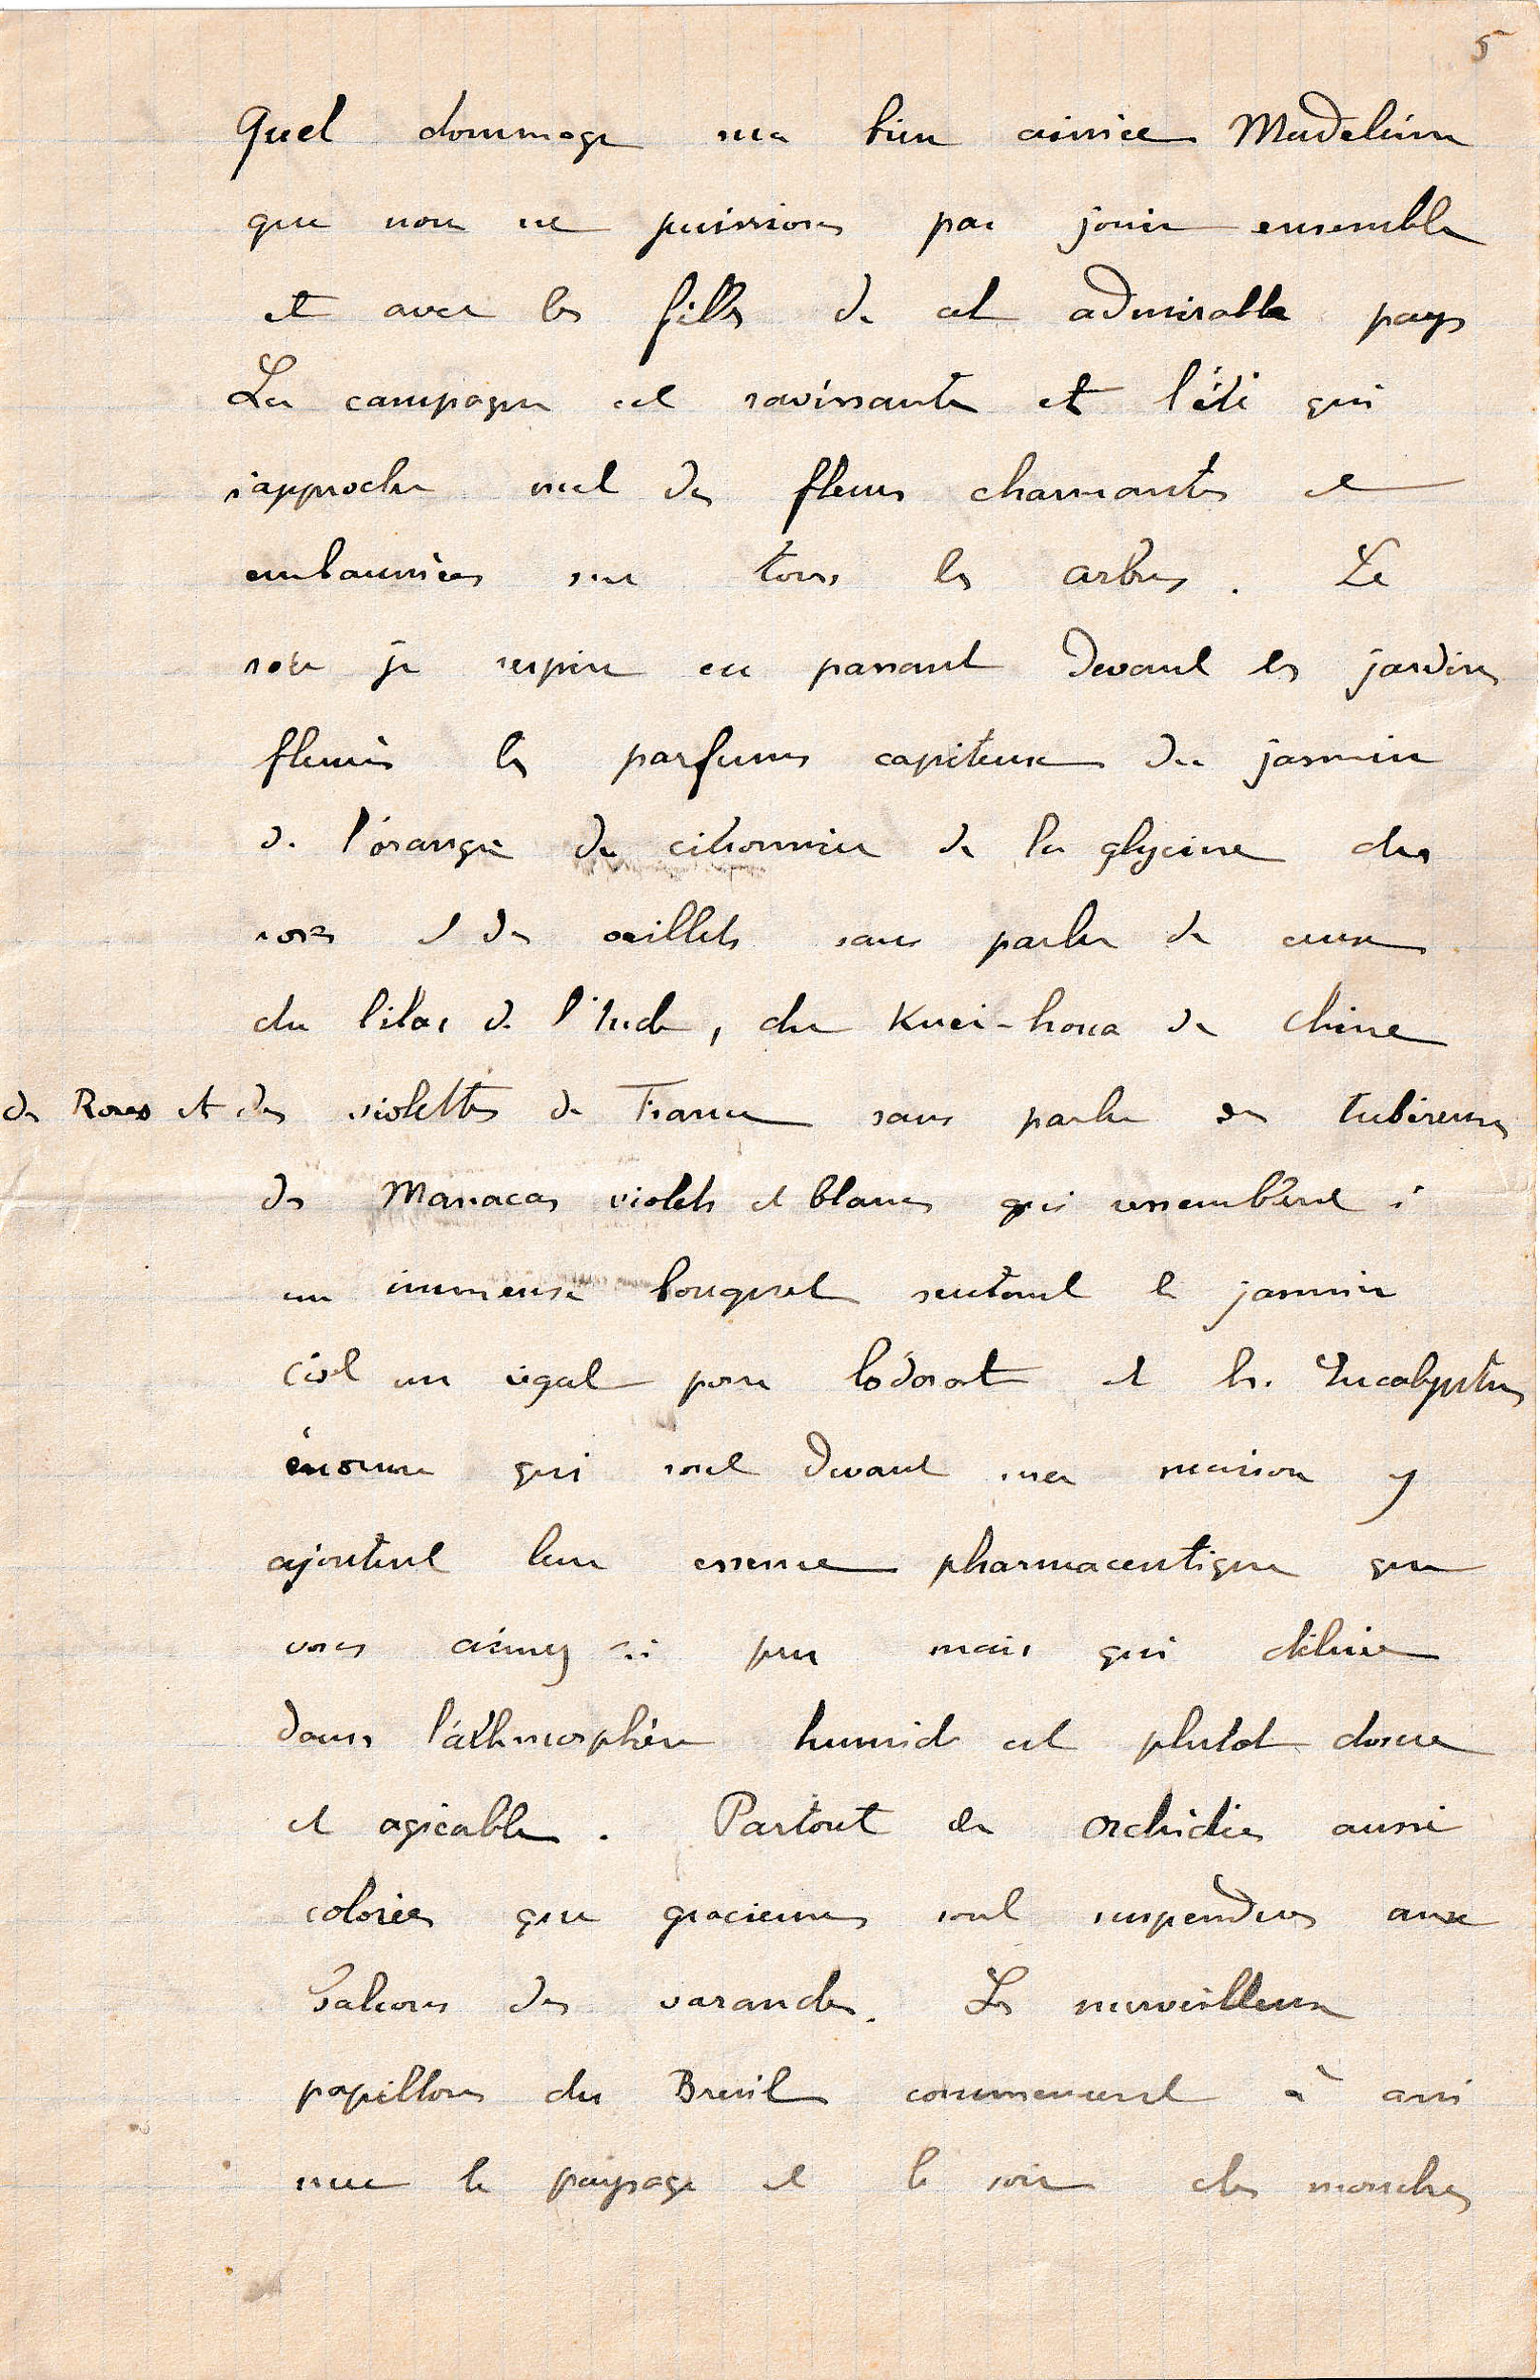 5
Quel dommage ma bien aimée Madeleine
que nous ne puissions pas jouir ensemble
et avec les filles de cet admirable pays
La campagne est ravissante et l'été qui
s'approche met des fleurs charmantes et
embaumées sur tous les arbres. Le
soir je respire en passant devant les jardins
fleuris les parfums capiteux du jasmin
de l'oranger du citronnier de la glycine des
roses et des œillets sans parler de ceux
du lilas de l'Inde, du Kuei-houa de Chine
de Roses et des violettes de France sans parler des tubéreuses
des Manacas violets et blancs qui ressemblent à
un immense bouquet sentant le jasmin
C'est un régal pour l'odorat et les Eucalyptus
énormes qui sont devant ma maison y
ajoutent leur essence pharmaceutique que
vous aimez si peu mais qui diluée
dans l'athmosphère humide est plutot douce
et agréable. Partout des orchidées aussi
colorées que gracieuses sont suspendues aux
balcons des varandes. Les merveilleux
papillons du Brésil commencent à ani
mer le paysage et le soir des mouches